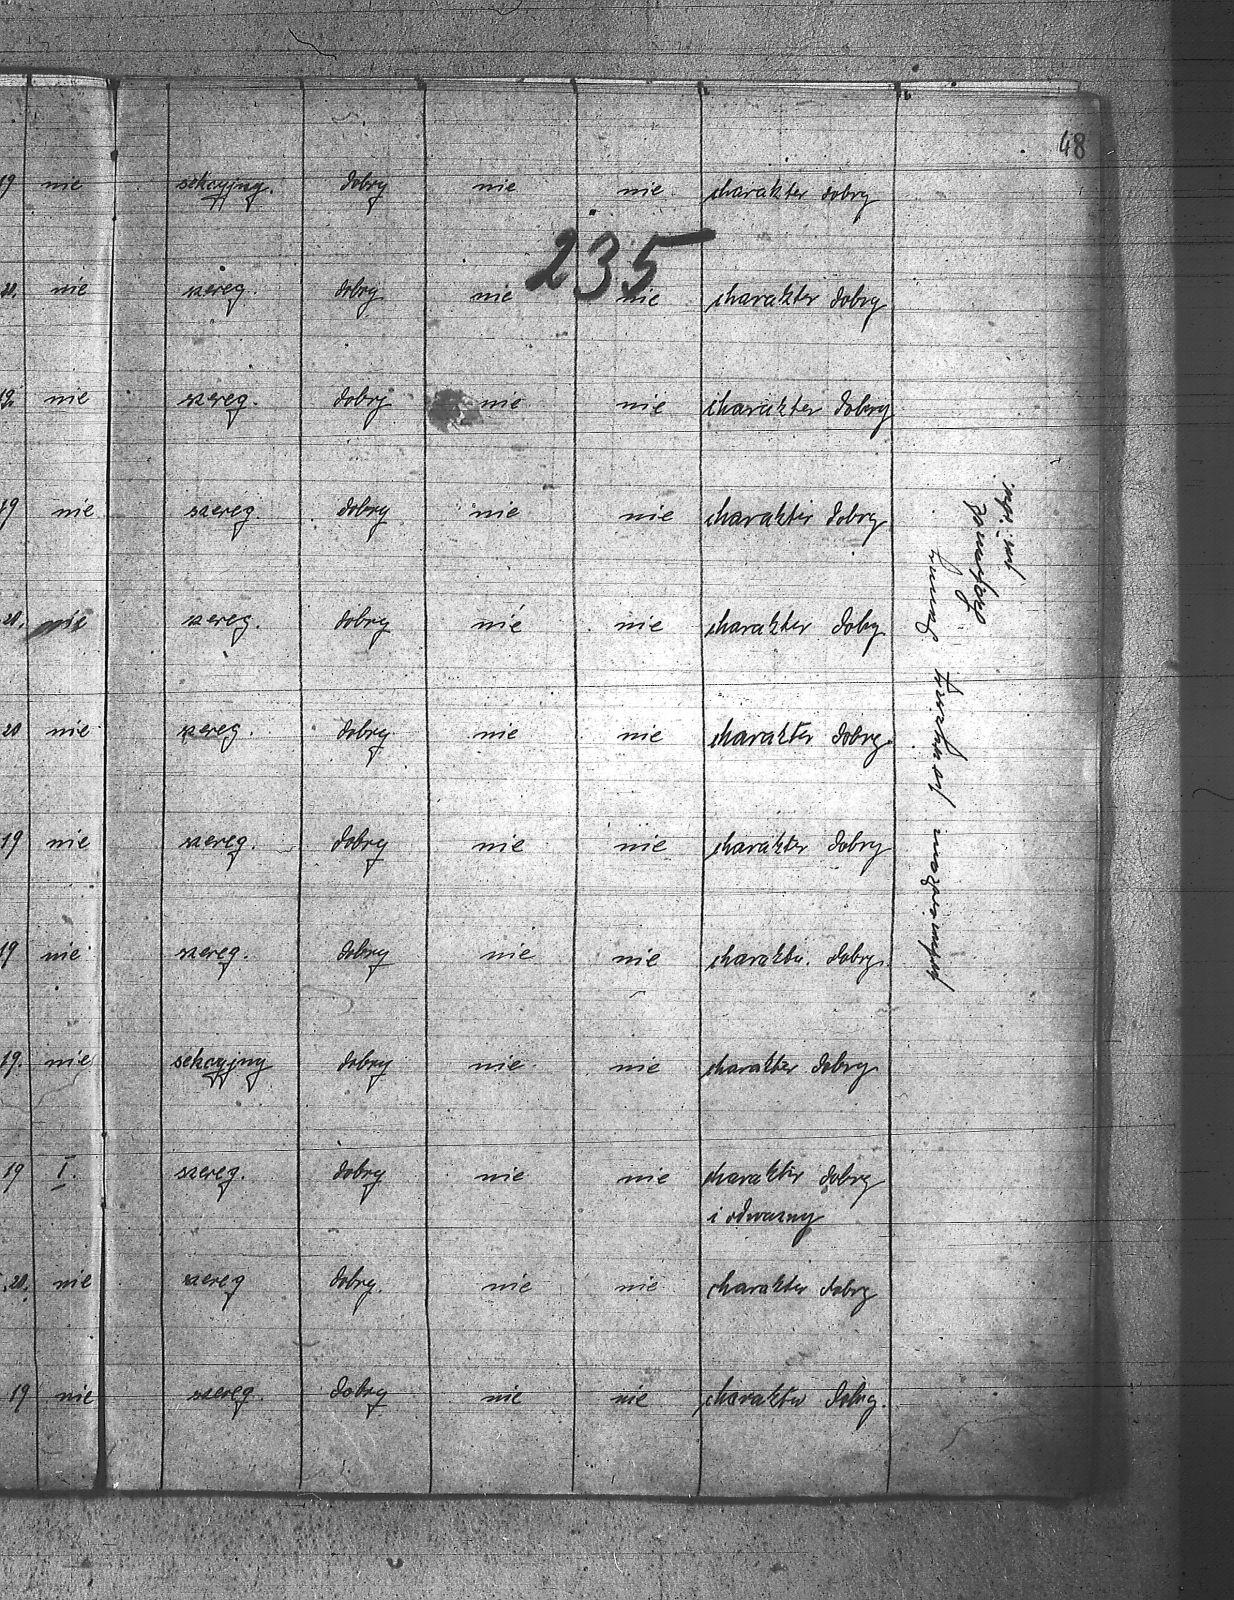 48
19 nie sekcyjny. dobry nie nie charakter dobry
235
20. nie szereg. dobry nie nie charakter dobry
19. nie szereg. dobry nie nie charakter dobry
19 nie szereg. dobry nie nie charakter dobry
20. nie szereg. dobry nie nie charakter dobry
20 nie szereg. dobry nie nie charakter dobry.
19 nie szereg. dobry nie nie charakter dobry
19 nie szereg. dobry nie nie charakter. dobry.
19. nie sekcyjny dobry nie nie charakter dobry
19 I. szereg. dobry nie nie charakter dobry
i odwazny
20. nie szereg dobry. nie nie charakter dobry
19 nie szereg. dobry nie nie charakter dobry.